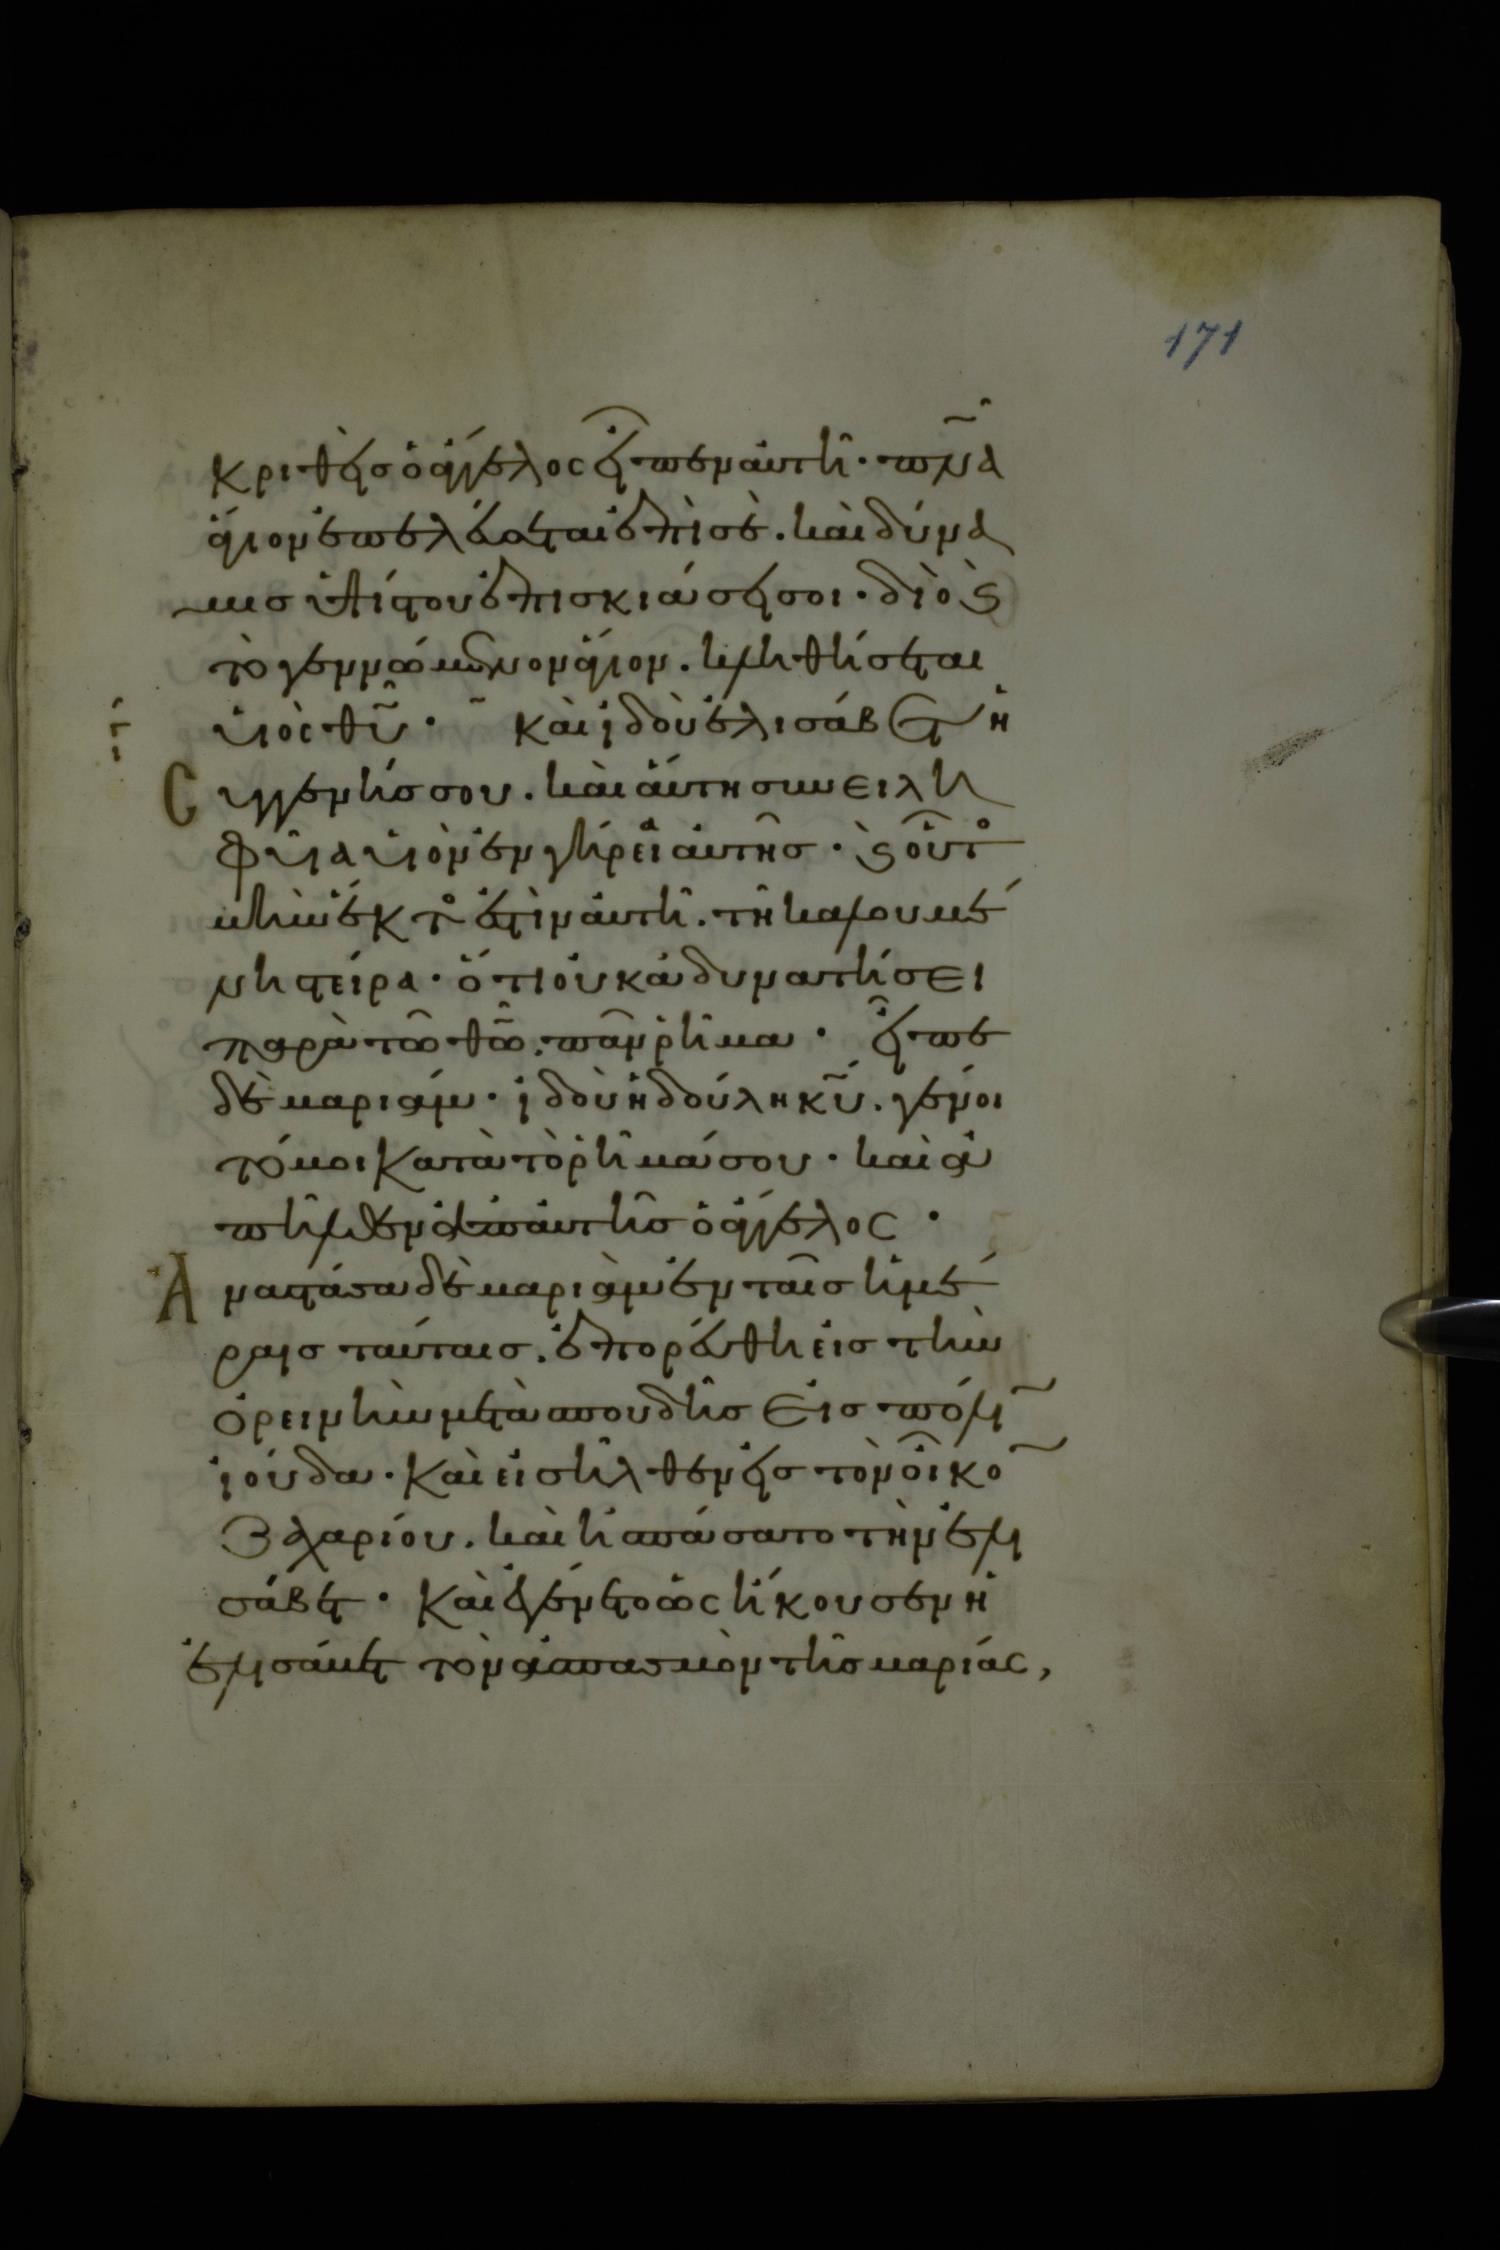 171
κριθεὶς ὁ ἄγγελος εἶπεν αὐτῆ· πνᾶ
ἅγιον ἐπελεύσεται ἐπὶ σὲ. καὶ δύνα
μις ὑψίστου ἐπισκιάσει σοι· διὸ ϗ
τὸ γεννώμενον ἅγιον. κληθήσεται
υἱὸς θῦ· καὶ ἰδοὺ ἐλισάβετ ἡ
συγγενής σου. καὶ αὐτὴ συνειλη
φυῖα υἱὸν ἐν γήρει αὐτῆς· ϗ οὗτο
μὴν ἕκτο ἐστὶν αὐτῆ. τῆ καλουμέ
νη στείρα· ὅτι οὐκ ἀδυνατήσει
παρὰ τῶ θῶ. πᾶν ῥῆμα· εἶπε
δὲ μαριάμ· ἰδοὺ ἡ δούλη κῦ. γένοι
τό μοι κατὰ τὸ ῥῆμά σου· καὶ ἀ
πῆλθεν ἀπ' αὐτῆς ὁ ἄγγελος·
Ἀναστᾶσα δὲ μαριὰμ ἐν ταῖς ἡμέ
ραις ταύταις. ἐπορεύθη εἰς τὴν
ὀρεινὴν μετὰ σπουδῆς εἰς πόλι
ἰούδα· καὶ εἰσῆλθεν εἰς τὸν οἶκο
ζαχαρίου. καὶ ἠσπάσατο τὴν ἐλι
σάβετ· καὶ ἐγένετο ὡς ἤκουσεν ἡ
ἐλισάβετ τὸν ἀσπασμὸν τῆς μαρίας,